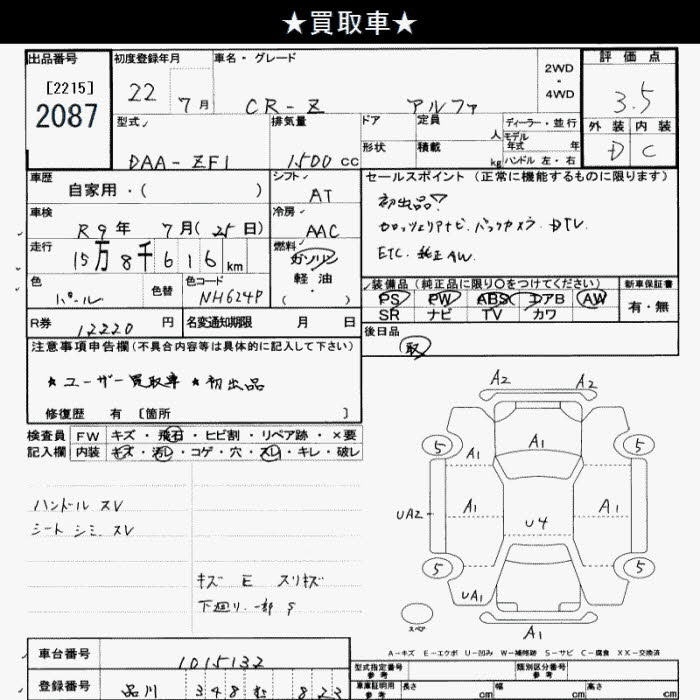 ★買取車★
出品番号
[2215]
2087
初度登録年月
22 7月
車名・グレード
CR-Z アルファ
2WD
・
4WD
評価点
3.5
外装 内装
D C
型式
DAA-ZF1
排気量
1500 cc
ドア
形状
定員
人
積載
kg
ディーラー・並行
モデル年式 年
ハンドル 左・右
車歴
自家用・( )
シフト
AT
車検
R9年 7月(25日)
冷房
AAC
走行
15万8千616km
燃料
ガソリン
軽油
( )
色
パール
色替
色コード
NH624P
R券
12220円
名変通知期限 月 日
セールスポイント (正常に機能するものに限ります)
初出品▽
カロッツェリアナビ. バックカメラ. DTV.
ETC. 純正AW.
装備品(純正品に限り○をつけてください)
PS PW ABS エアB AW
SR ナビ TV カワ
新車保証書
有・無
後日品
取
注意事項申告欄(不具合内容等は具体的に記入して下さい)
★ユーザー買取車 ★初出品
修復歴 有〔箇所 〕
検査員
記入欄
FW キズ・飛石・ヒビ割・リペア跡・×要
内装 キズ・汚レ・コゲ・穴・スレ・キレ・破レ
ハンドル スレ
シート シミ. スレ
キズ E スリキズ
下廻リ一部S
A2 A2
A1
5 5
A1
UA2 A1 U4 A1
5 5
UA1
スペア
A1
A-キズ E-エクボ U-凹み W-補修跡 S-サビ C-腐食 XX-交換済
車台番号
1015132
登録番号
品川 348 む 823
型式指定番号
参考
類別区分番号
参考
車庫証明用
参考
長さ cm 幅 cm 高さ cm